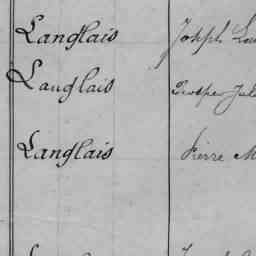 Langlais Joseph
Langlais Prosper Jul
Langlais Pierre M